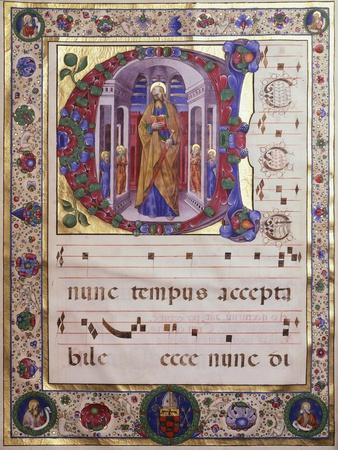 E
C
C
E
nunc tempus accepta
bile ecce nunc di